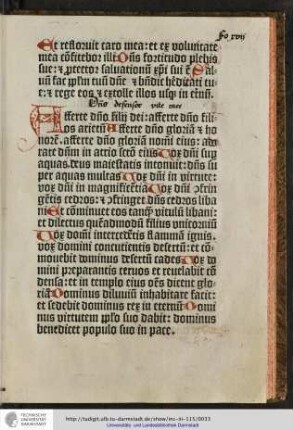 fo xvii
Et refloruit caro mea: et ex voluntate
mea cōfitebor illi Dñs fortitudo plebis
sue: et ꝓtector saluationū xp̄i sui ē Sal
uū fac pplm tuū dñe et bñdic hedītati tu
e: et rege eos et extolle illos usqȝ in etnū.
Dñs defensor vite mee
Afferte dño filii dei: afferte dño fili
os arietū Afferte dño gloriā et ho
norē. afferte dño gloriā nomi eius: ado
rate dñm in atrio scto eius Vox dñi sup
aquas deus maiestatis intonuit: dñs su
per aquas multas Vox dñi in virtute:
vox dñi in magnificētia Vox dñi ꝯfrin
gētis cedros: et ꝯfringet dñs cedros liba
ni Et cōminuet eos tanqȝ vitulū libani:
et dilectus quēadmodū filius vnicorniū
Vox domī intercidētis flammā ignis.
vox domini concutientis desertū: et cō-
mouebit dominus desertū cades Vox do
mini preparantis ceruos et reuelabit cō
densa: et in templo eius oēs dicent glo
riā Dominus diluuiū inhabitare facit:
et sedebit dominus rex in eternū Domi
nus virtutem pplo suo dabit: dominus
benedicet populo suo in pace.
TECHNISCHE
UNIVERSITÄT
DARMSTADT
http://tudigit.ulb.tu-darmstadt.de/show/inc-iii-115/0033
Universitäts- und Landesbibliothek Darmstadt